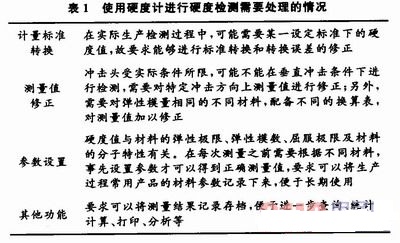 表1 使用硬度计进行硬度检测需要处理的情况
计量标准转换
在实际生产检测过程中,可能需要某一设定标准下的硬
度值,故要求能够进行标准转换和转换误差的修正
测量值修正
冲击头受实际条件所限,可能不能在垂直冲击条件下进
行检测,需要对特定冲击方向上测量值进行修正;另外,
需要对弹性模量相同的不同材料,配备不同的换算表,
对测量值加以修正
参数设置
硬度值与材料的弹性极限、弹性模数、屈服极限及材料
的分子特性有关。在每次测量之前需要根据不同材料,
事先设置参数才可以得到正确测量值,要求可以将生产
过程常用产品的材料参数记录下来,便于长期使用
其他功能
要求可以将测量结果记录存档,便于进一步查询、统计
计算、打印、分析等